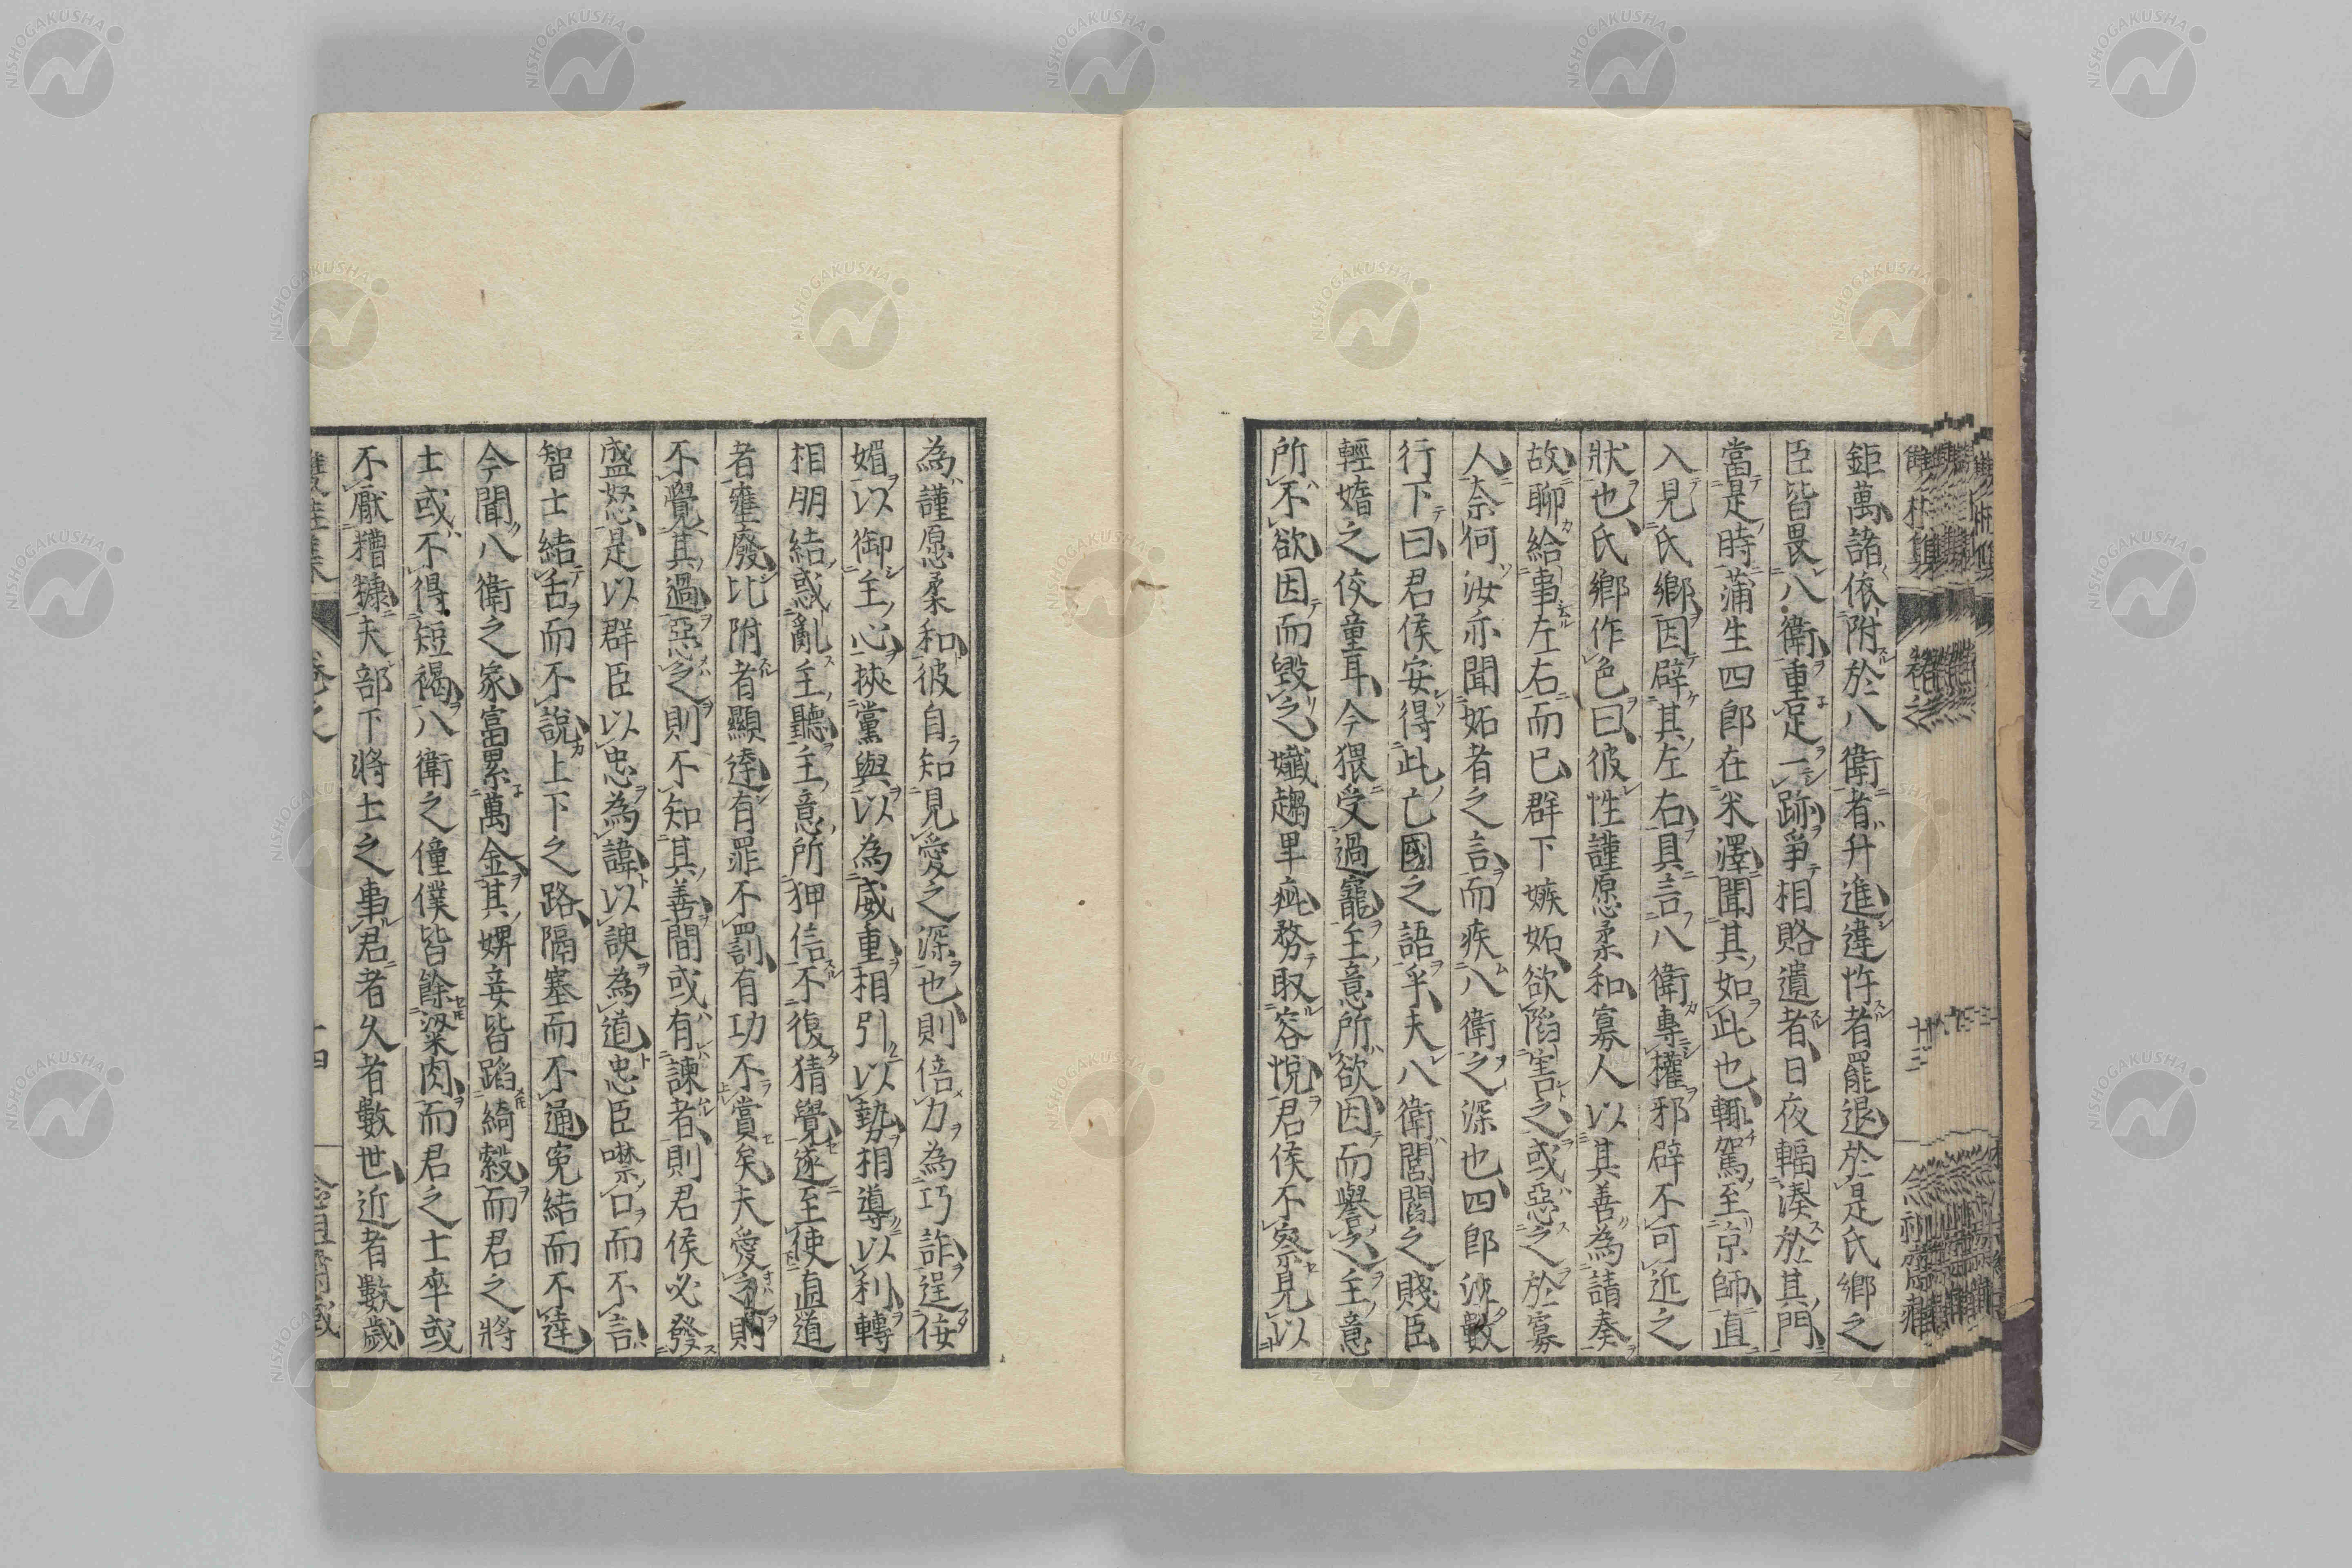 鉅萬諸依附於八衛者升進違忤者罷退於是氏鄉之
臣皆畏八衛重足一跡爭相賂遺者日夜輻湊於其門
當是時蒲生四郎在米澤聞其如此也輒駕至京師直
入見氏鄉因辟其左右具言八衛專權邪辟不可近之
狀也氏鄉作色曰彼性謹愿柔和寡人以其善為請奏
故聊給事左右而已群下嫉妬欲陷害之或惡之於寡
人奈何汝亦聞妬者之言而疾八衛之深也四郎泣數
行下曰君侯安得此亡國之語乎夫八衛閭閻之賤臣
輕媠之佼童耳今猥受過寵主意所欲因而譽之主意
所不欲因而毀之孅趨卑疵務取容悅君侯不察見以
為謹愿柔和彼自知見愛之深也則倍力為巧詐逞侫
媚以御主心挾黨與以為威重相引以勢相導以利轉
相朋結惑亂主聽主意所狎信不復猜覺遂至使直道
者壅廢比附者顯達有罪不罰有功不賞矣夫愛之則
不覺其過惡之則不知其善間或有諫者則君侯必發
盛怒是以群臣以忠為諱以諛為道忠臣噤口而不言
智士結舌而不說上下之路隔塞而不通冤結而不達
今聞八衛之家富累萬金其嬶妾皆蹈綺縠而君之將
士或不得短褐八衛之僮僕皆餘粱肉而君之士卒或
不厭糟糠夫部下將士之事君者久者數世近者數歲
NISHOGAKUSHA